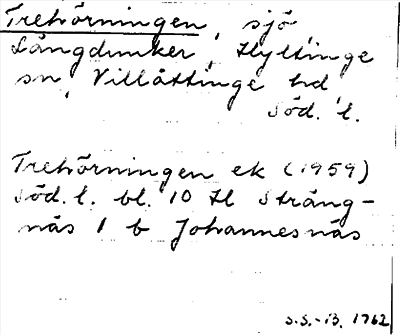 Trehörningen, sjö
Långdunker, Hyltinge
sn, Villåttinge hd
Söd. l.
Trehörningen ek (1959)
Söd. l. bl. 10 H Sträng-
näs 1 b Johannesnäs
S.S.-B. 1762